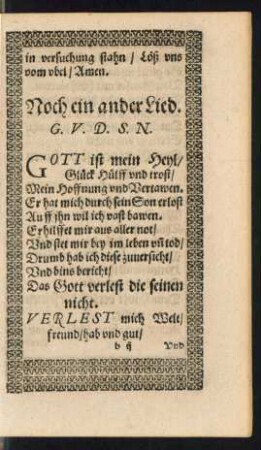 in versuchung stahn / Löß vns
vom vbel / Amen.
Noch ein ander Lied.
G. V. D. S. N.
GOTT ist mein Heyl /
Glück Hülff vnd trost /
Mein Hoffnung vnd Vertawen.
Er hat mich durch sein Son erlost
Auff ihn wil ich vast bawen.
Er hilffet mir aus aller not /
Vnd stet mir bey im leben vñ tod /
Drumb hab ich diese zuuersicht /
Vnd bins bericht /
Das Gott verlest die seinen
nicht.
VERLEST mich Welt /
freund / hab vnd gut /
b ij Vnd